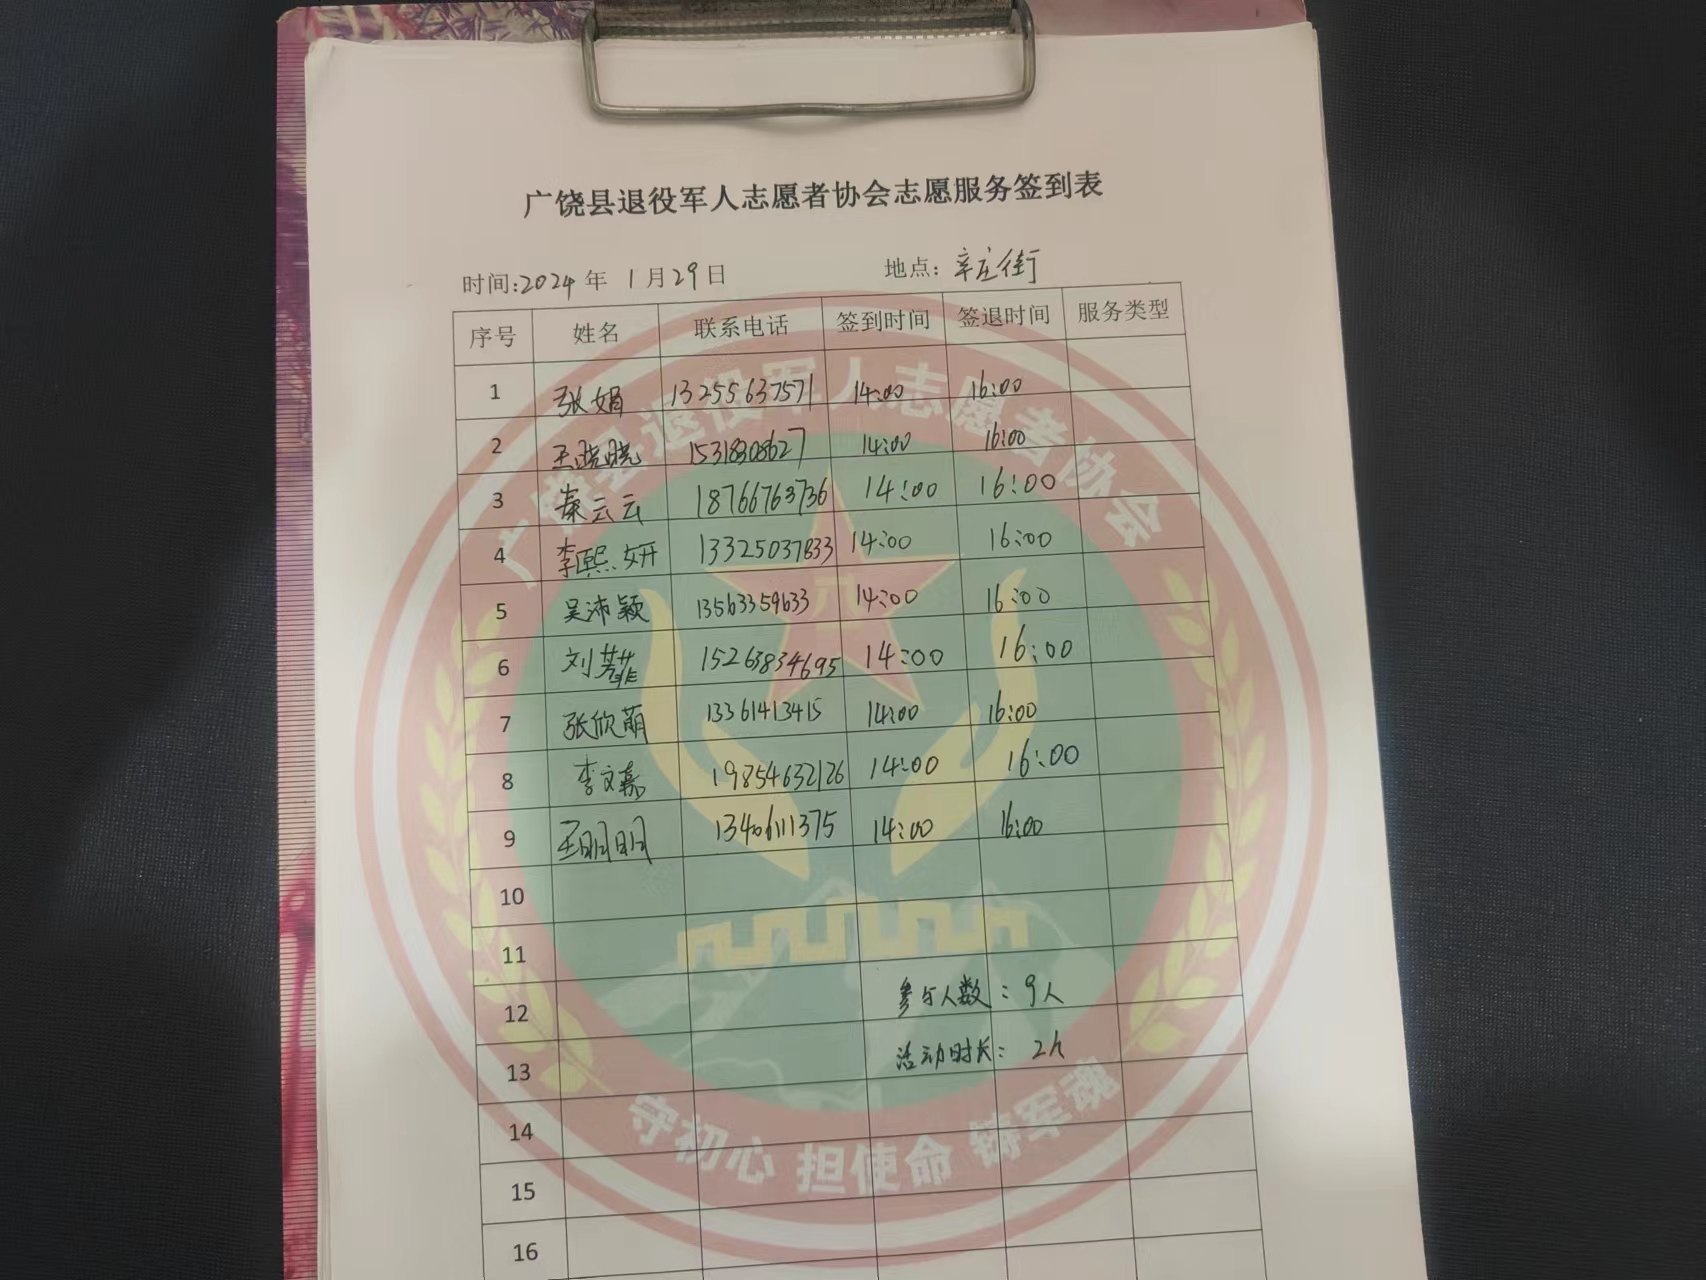 广饶县退役军人志愿者协会志愿服务签到表
时间:2024年 1月29日 地点：辛庄街
序号 姓名 联系电话 签到时间 签退时间 服务类型
1 张娟 13255637571 14:00 16:00
2 王晓晓 15318308627 14:00 16:00
3 秦云云 18766763736 14:00 16:00
4 李熙妍 13325037633 14:00 16:00
5 吴沛颖 13563359633 14:00 16:00
6 刘芳菲 15263834695 14:00 16:00
7 张欣萌 13361413415 14:00 16:00
8 李文嘉 19854632126 14:00 16:00
9 王明明 13406111375 14:00 16:00
10
11
12 参与人数：9人
13 活动时长：2h
14
15
16
广饶县退役军人志愿者协会
守初心 担使命 铸军魂